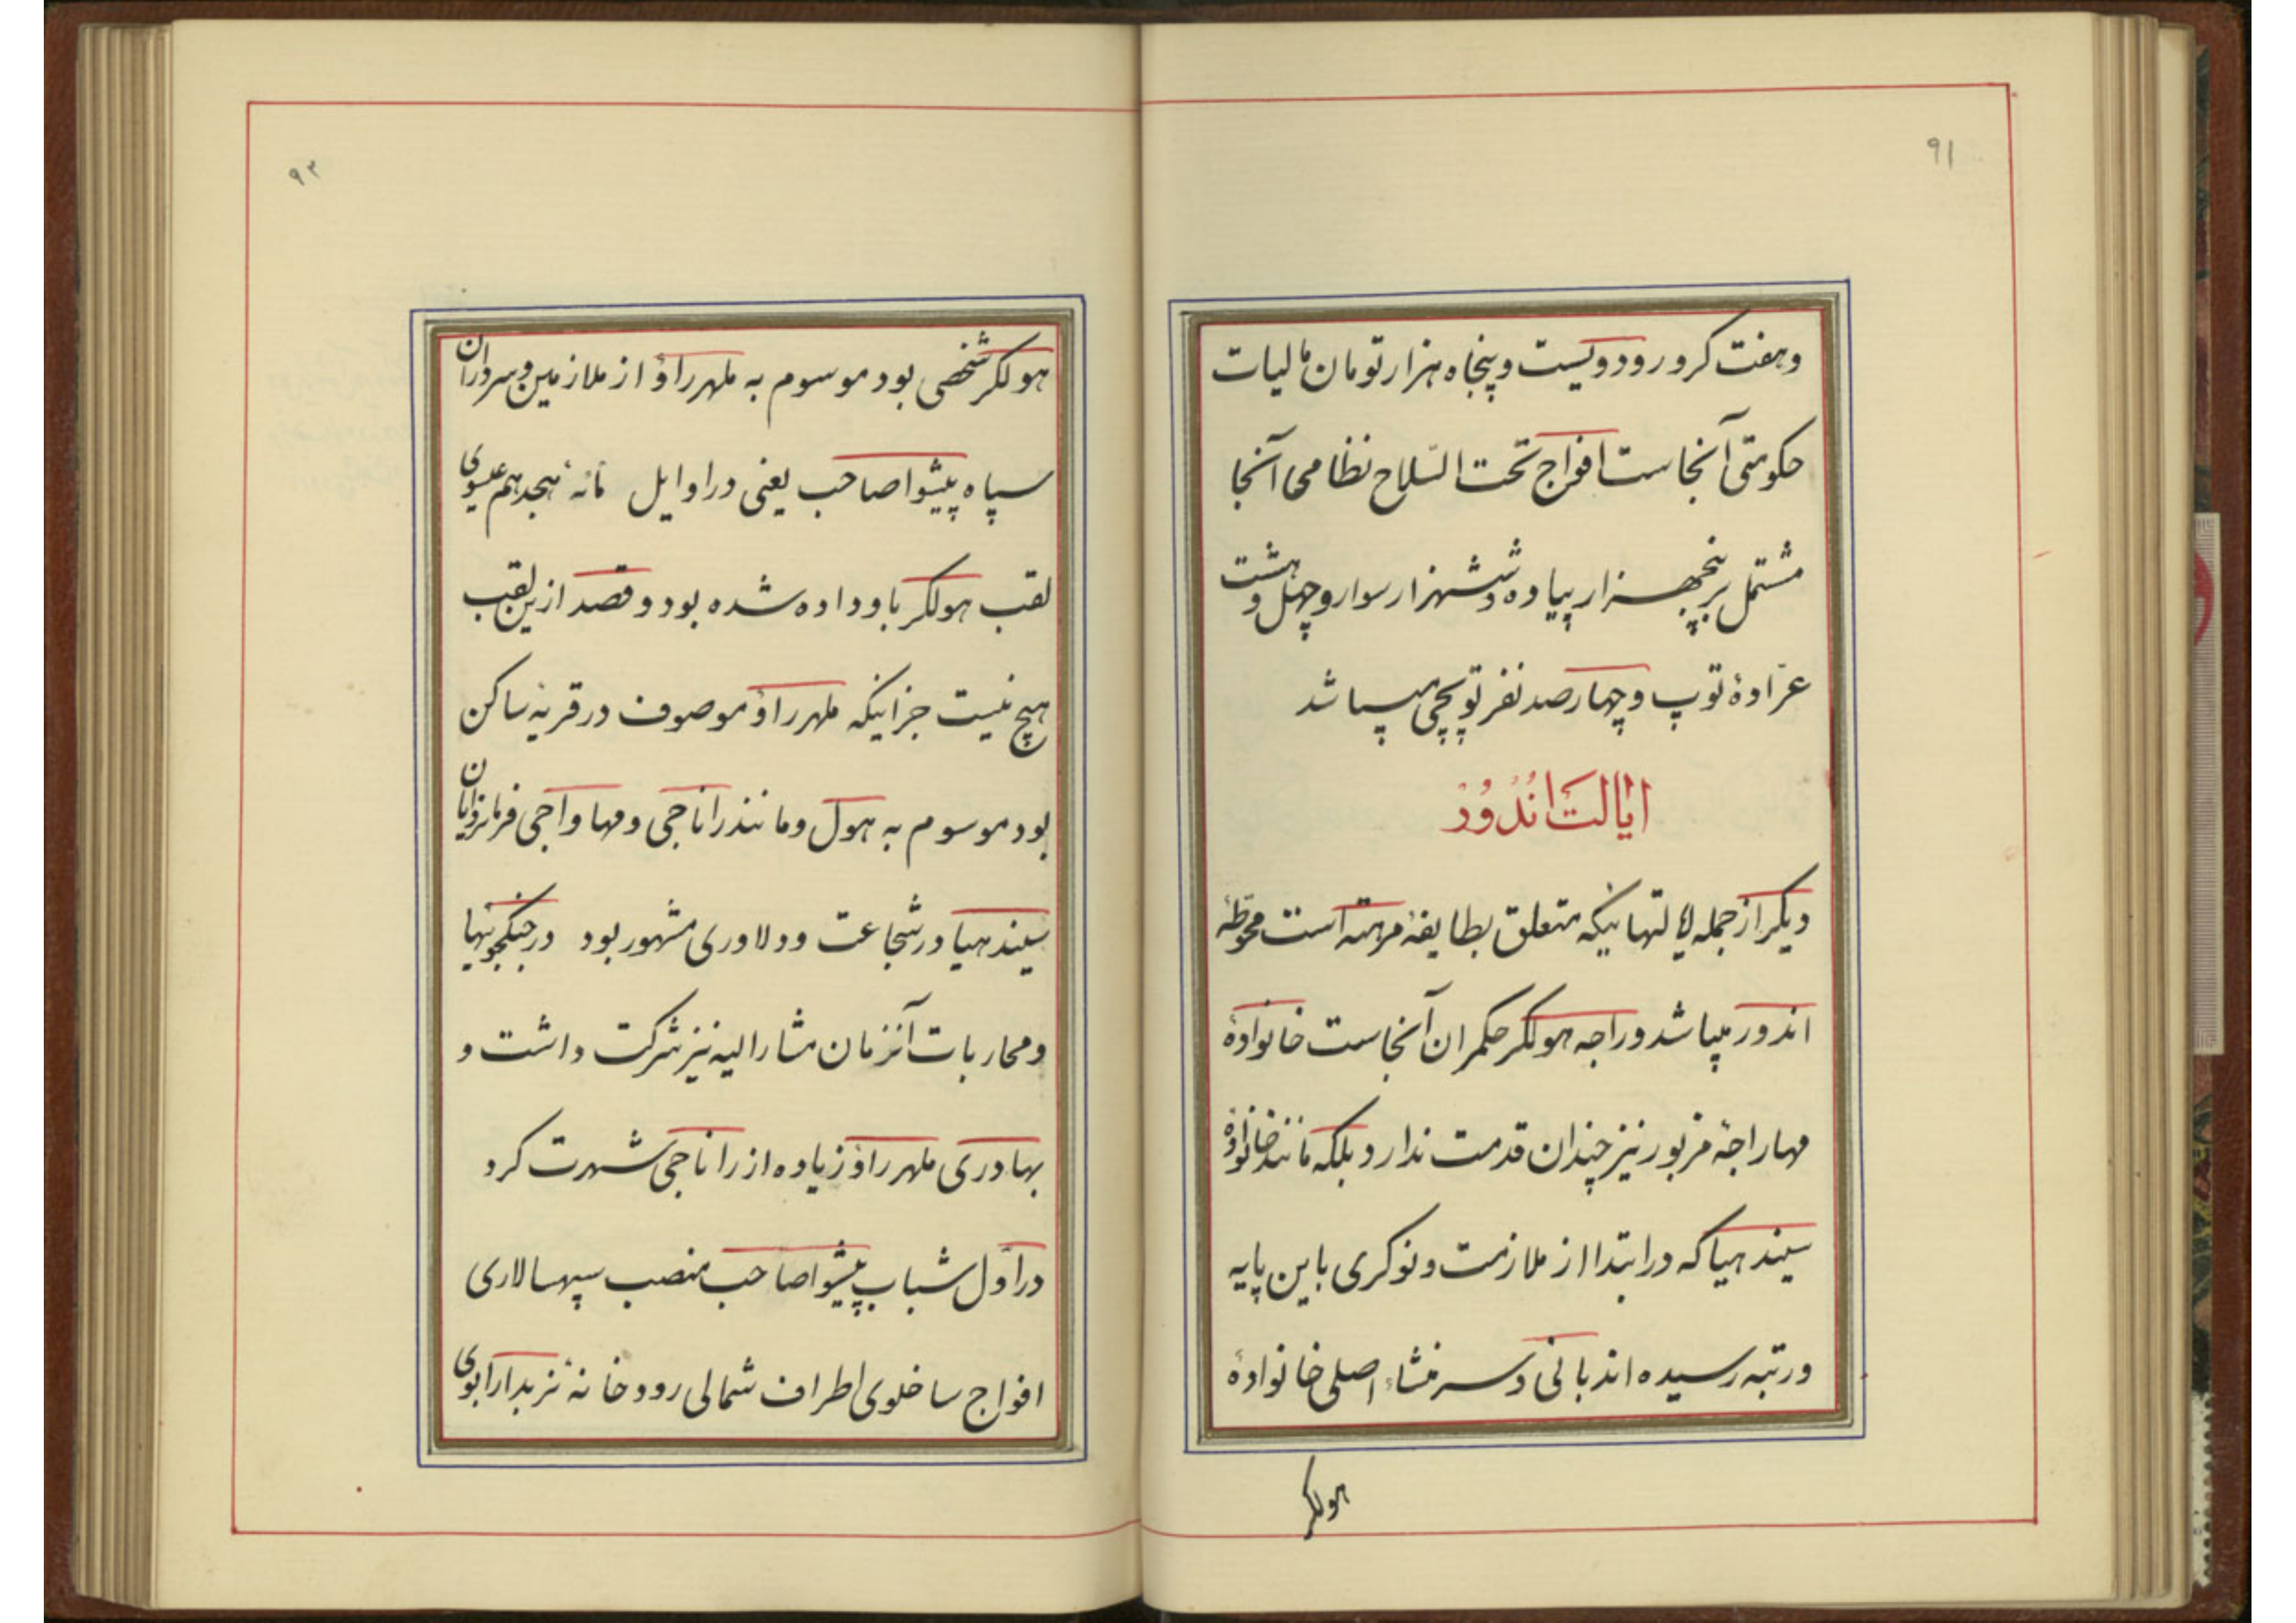 ۹۱
وهفت کرور و دویست و پنجاه هزار تومان مالیات
حکومتی آنجاست افواج تحت السّلاح نظامی آنجا
مشتمل بر پنجهزار پیاده و ششهزار سوار و چهل و هشت
عرّادهٔ توپ و چهارصد نفر توپچی میباشد
ایالت اندور
دیگر از جمله ایالتهائیکه متعلق بطایفهٔ مرهته است محوطهٔ
اندور میباشد و راجه هولکر حکمران آنجاست خانوادهٔ
مهاراجهٔ مزبور نیز چندان قدمت ندارد بلکه مانند خانوادهٔ
سیندهیا که در ابتدا از ملازمت و نوکری باین پایه
و رتبه رسیده اند بانی و سرمنشاء اصلی خانوادهٔ
هولکر
۹۲
هولکر شخصی بود موسوم به ملهر راؤ از ملازمین و سرداران
سپاه پیشوا صاحب یعنی در اوایل مائهٔ هیجدهم عیسوی
لقب هولکر باو داده شده بود و قصد ازین لقب
هیچ نیست جز اینکه ملهر راؤ موصوف در قریهٔ ساکن
بود موسوم به هول و مانند راناجی و مهاواجی فرمانروایان
سیندهیا در شجاعت و دلاوری مشهور بود در جنگجوئیها
و محاربات آنزمان مشارالیه نیز شرکت داشت و
بهادری ملهر راؤ زیاده از راناجی شهرت کرد
در اوّل شباب پیشوا صاحب منصب سپهسالاری
افواج ساخلوی اطراف شمالی رودخانهٔ نربدا را بوی